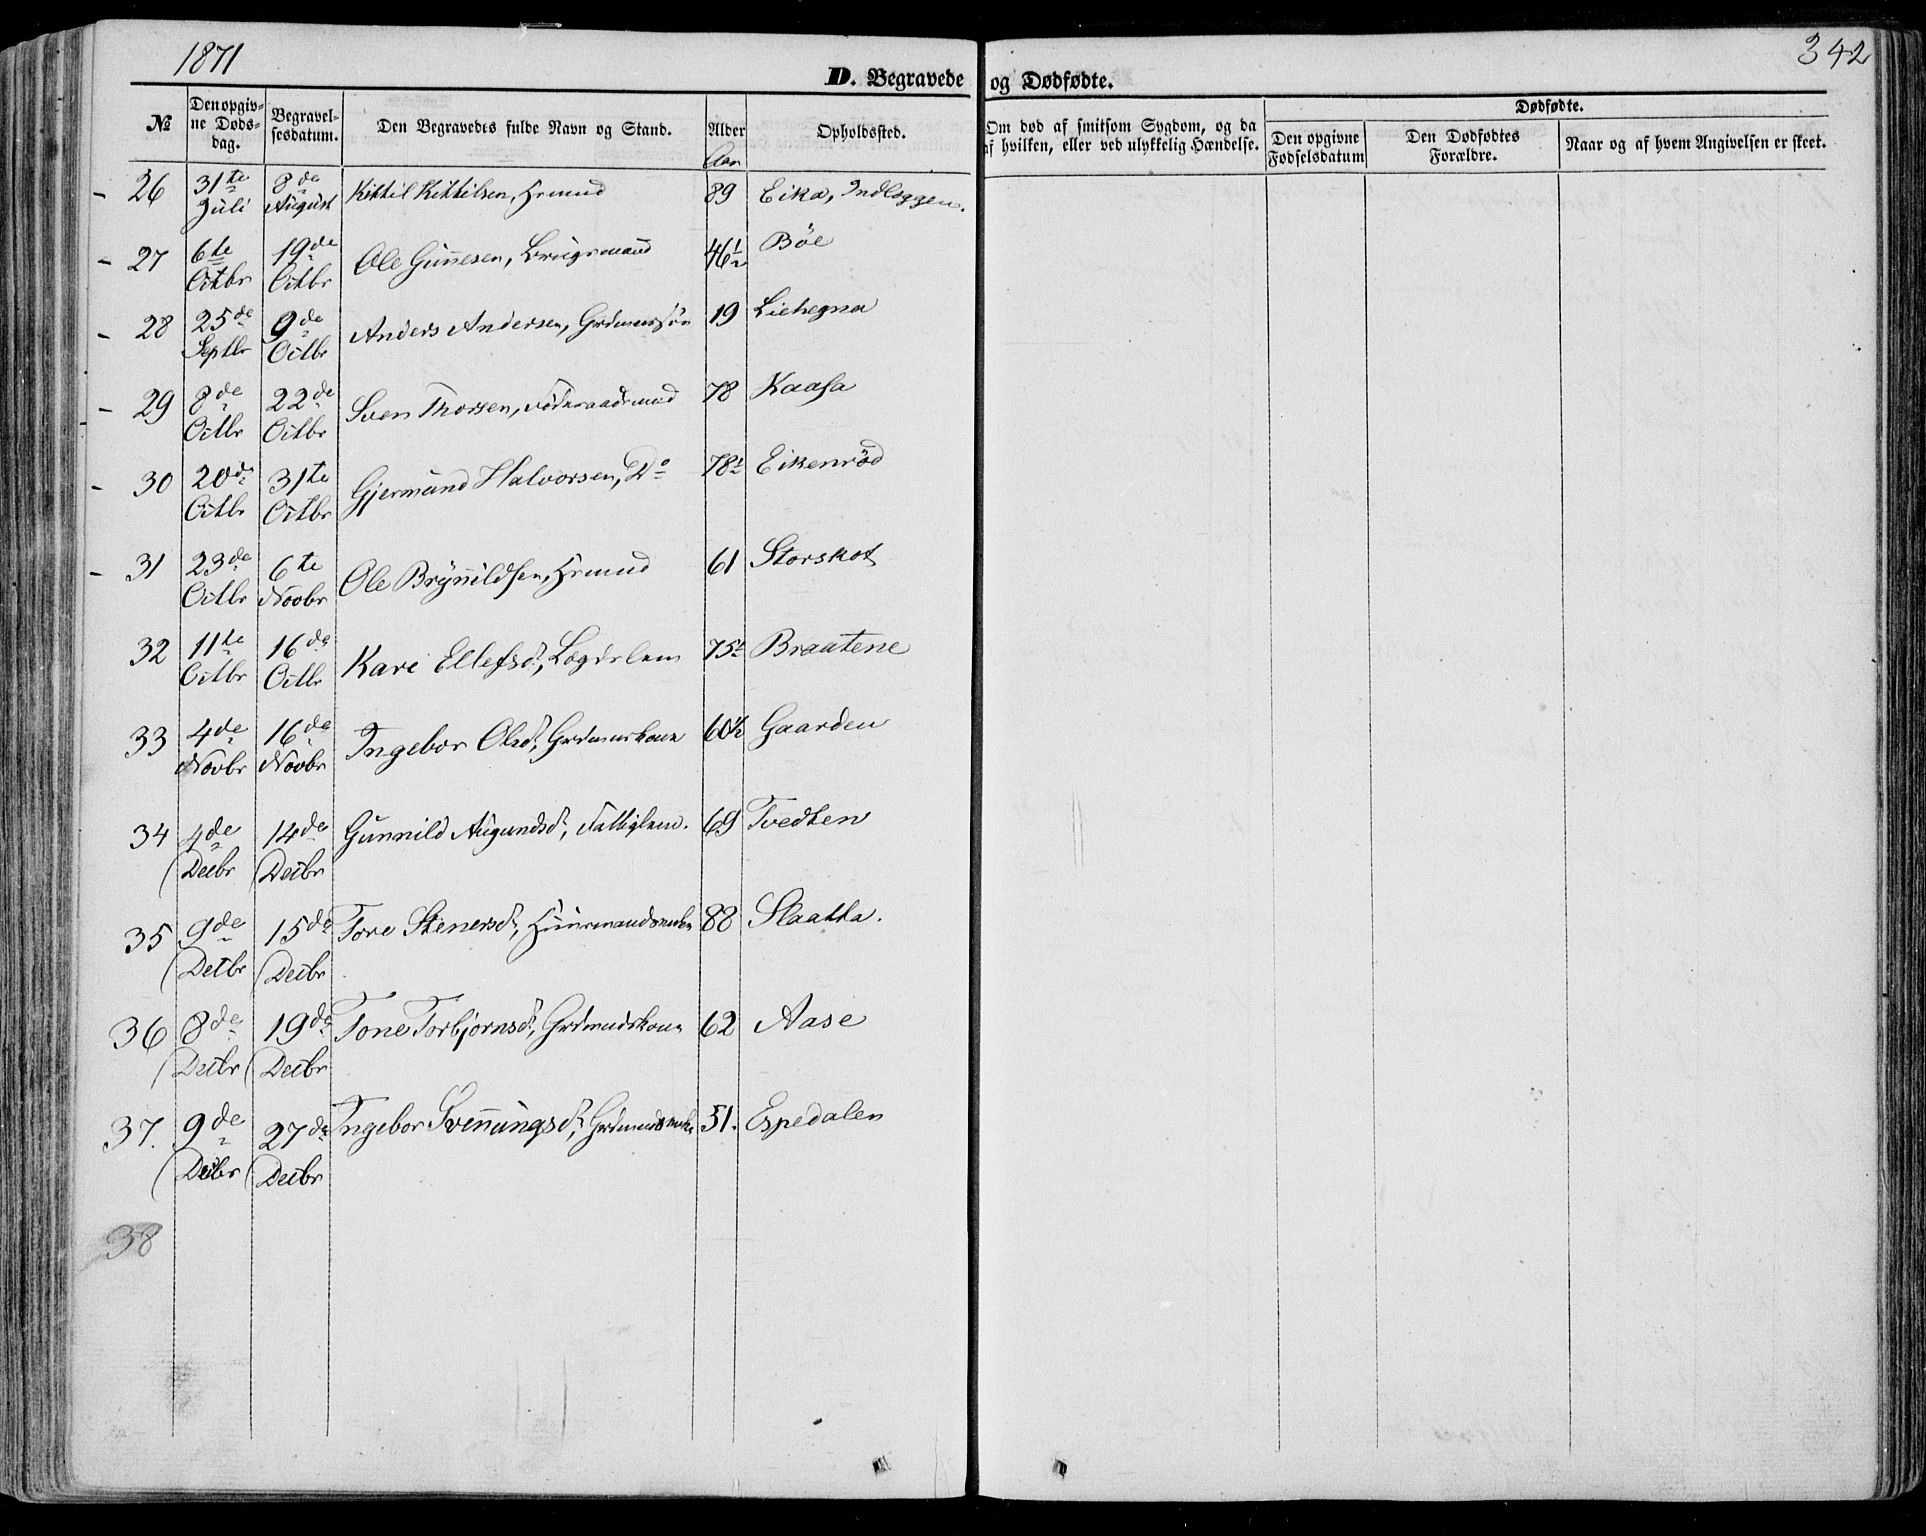 1871
342
D. Begravede og Dødfødte.
№ | Den opgivne Døds-dag. | Begravelsesdatum. | Den Begravedes fulde Navn og Stand. | Alder Aar | Opholdssted. | Om død af smitsom Sygdom, og da af hvilken, eller ved ulykkelig Hændelse. | Dødfødte. | Den opgivne Fødselsdatum | Den Dødfødtes Forældre. | Naar og af hvem Angivelsen er skeet.
- 26 | 31te Juli | 8de August | Kittil Kittilsen, Hrmnd | 89 | Eika, Indlæggen.
- 27 | 6te Octbr | 19de Octbr | Ole Gunnesen, Brugsmand | 46½ | Böe
- 28 | 25de Septbr | 9de Octbr | Anders Andersen, Grdmnssön | 19 | Liehegna
- 29 | 8de Octbr | 22de Octbr | Sven Thorsen, Föderaadsmnd | 78 | Kaasa
- 30 | 20de Octbr | 31te Octbr | Gjermund Halvorsen, Do | 78½ | Eikenröd
- 31 | 23de Octbr | 6te Novbr | Ole Brynnildsen, Hrmnd | 61 | Storskot
32 | 11te Octbr | 16de Octbr | Kari Ellefsd., Lægdslem | 75½ | Braatene
33 | 4de Novbr | 16de Novbr | Ingebor Olsd., Grdmnskone | 60½ | Gaarden
34 | 4de Decbr | 14de Decbr | Gunnild Augundsd., Fattiglem. | 69 | Tvedten
35 | 9de Decbr | 15de Decbr | Tore Stenersd., Huusmandsenke | 88 | Slaatta.
36 | 8de Decbr | 19de Decbr | Tone Torbjörnsd., Grdmndskone | 62 | Aase
37. | 9de Decbr | 27de Decbr | Ingebor Svenningsd., Grdmndsenke | 51. | Espedalen
38